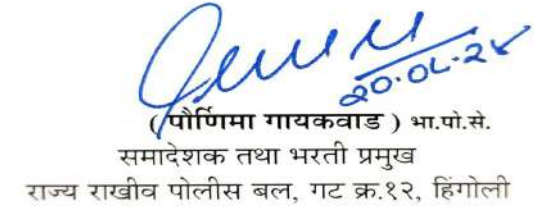 २०.०८.२४
( पौर्णिमा गायकवाड ) भा.पो.से.
समादेशक तथा भरती प्रमुख
राज्य राखीव पोलीस बल, गट क्र.१२, हिंगोली